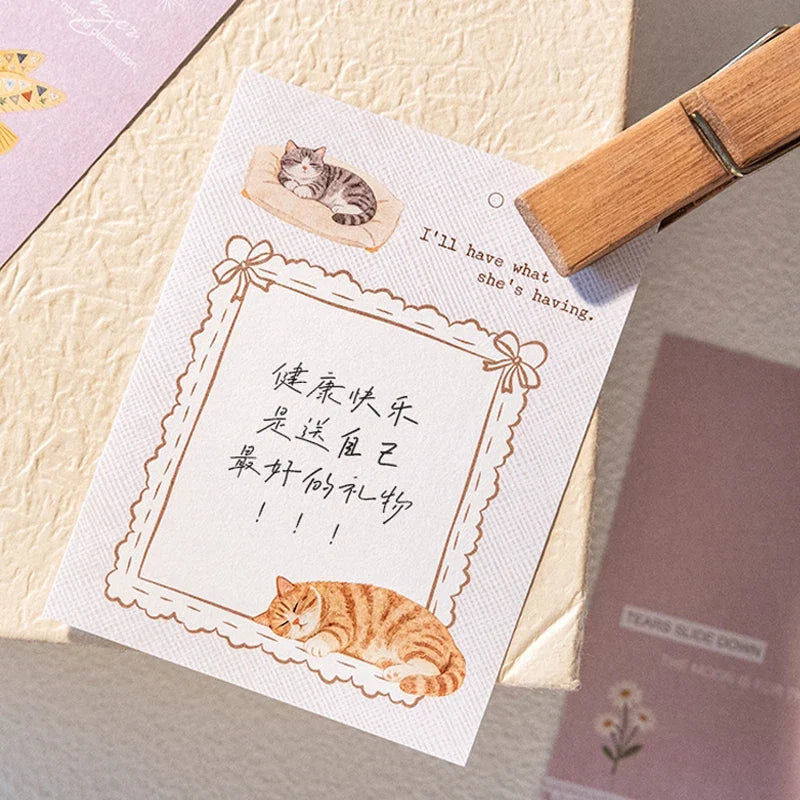 not just destination.
I'll have what
she's having.
健康快乐
是送自己
最好的礼物
！！！
TEARS SLIDE DOWN
THE MOON IS